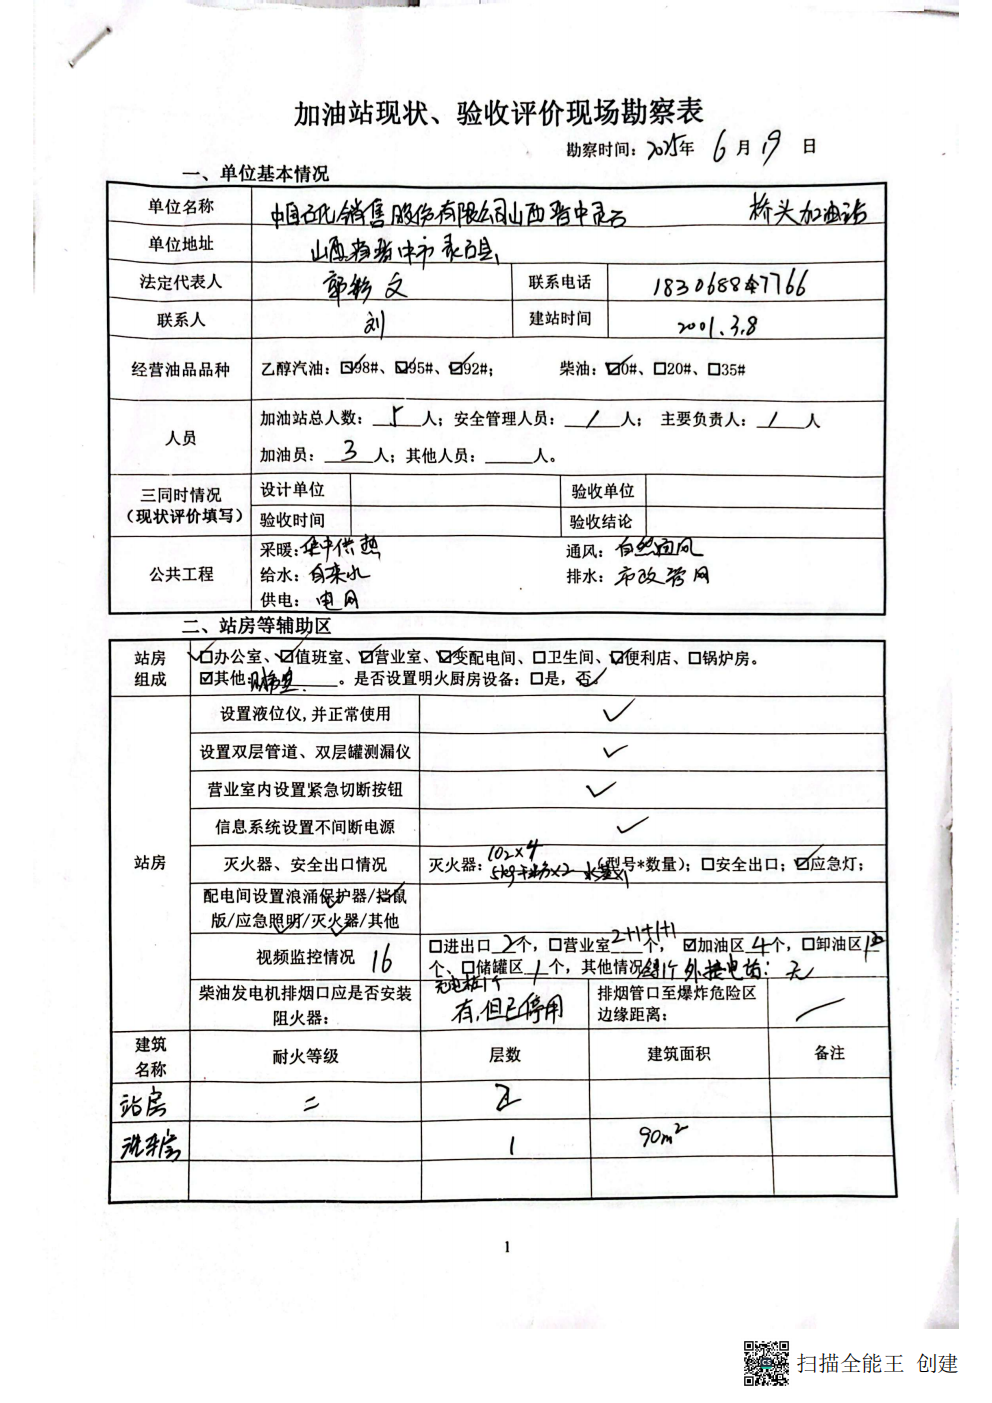 加油站现状、验收评价现场勘察表
勘察时间：2025年 6 月 19 日
一、单位基本情况
单位名称 中国石化销售股份有限公司山西晋中灵石 桥头加油站
单位地址 山西省晋中市灵石县
法定代表人 郭彩文 联系电话
联系人 刘 建站时间 2001.3.8
经营油品品种 乙醇汽油：☑98#、☑95#、☑92#； 柴油：☑0#、☐20#、☐35#
人员 加油站总人数：5人；安全管理人员：1人； 主要负责人：1人
加油员：3人；其他人员：____人。
三同时情况（现状评价填写） 设计单位 验收单位
验收时间 验收结论
公共工程 采暖：集中供热 通风：自然通风
给水：自来水 排水：市政管网
供电：电网
二、站房等辅助区
站房组成 ☑办公室、☑值班室、☑营业室、☑变配电间、☐卫生间、☑便利店、☐锅炉房。
☑其他 。是否设置明火厨房设备：☐是，否✓
站房 设置液位仪,并正常使用 ✓
设置双层管道、双层罐测漏仪 ✓
营业室内设置紧急切断按钮 ✓
信息系统设置不间断电源 ✓
灭火器、安全出口情况 灭火器： ×4 5kg干粉×2 （型号*数量）；☐安全出口；☑应急灯；
配电间设置浪涌保护器/挡鼠版/应急照明/灭火器/其他
视频监控情况 16 ☐进出口 2个，☐营业室 2+1+1+1 个，☑加油区 4个，☐卸油区 1
个、☐储罐区 1个，其他情况 外接电站：无
充电桩1个
柴油发电机排烟口应是否安装阻火器： 有,但已停用 排烟管口至爆炸危险区边缘距离： /
建筑名称 耐火等级 层数 建筑面积 备注
站房 二
洗车房 1 90m²
1
扫描全能王 创建